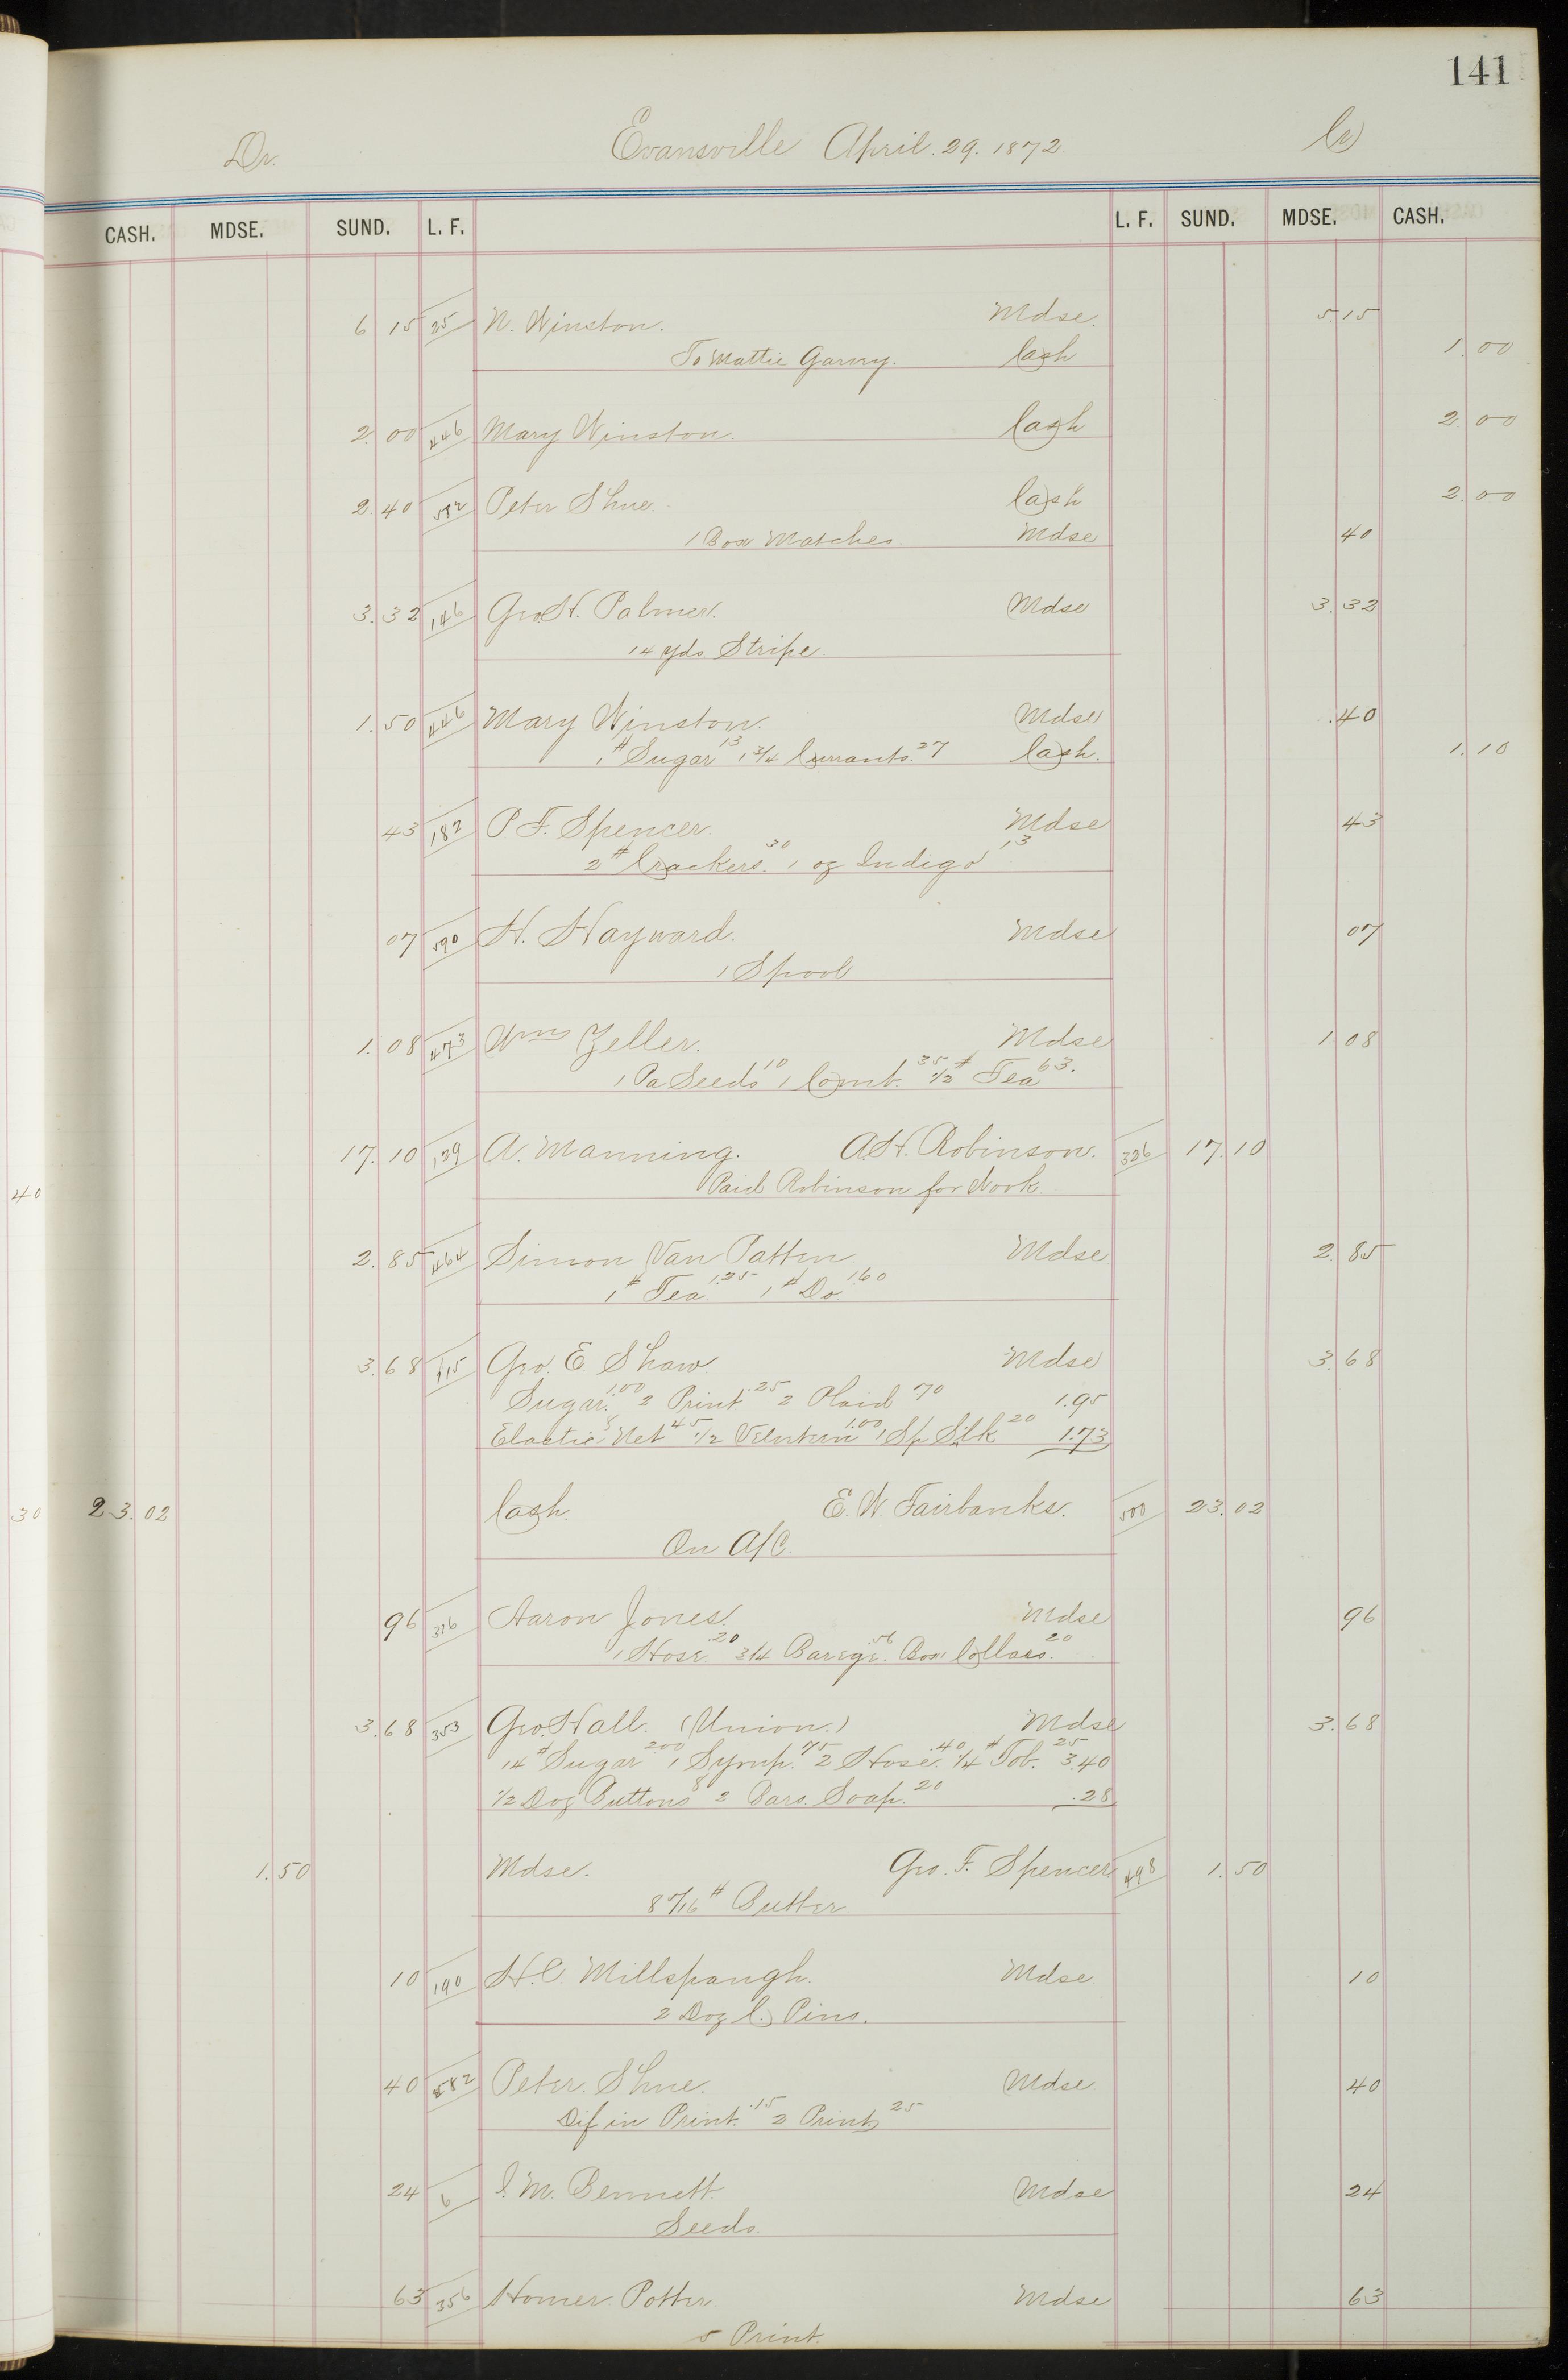 141
Dr. Evansville April. 29. 1872 Cr
CASH. MDSE. SUND. L. F. L. F. SUND. MDSE. CASH.
6 15 25 N. Winston. Mdse. 5.15
To Mattie Cash 1.00
2.00 446 Mary Winston. Cash 2.00
2.40 582 Peter Shue. Cash 2.00
1 Box Matches. Mdse 40
3.32 146 Geo. H. Palmer. Mdse 3.32
14 yds. Stripe
1.50 446 Mary Winston. Mdse .40
1# Sugar 13 1 3/4 Currants. 27 Cash. 1.10
43 182 P. F. Spencer. Mdse 43
2# Crackers. 30 1 oz Indigo 13
07 590 H. Hayward. Mdse 07
1 Spool
1.08 473 Wm Zeller. Mdse 1 08
1 Pa Seeds 10 1 Comb. 35 1/2# Tea 63.
17.10 129 A. Manning. A. H. Robinson. 326 17.10
Paid Robinson for Work
40
2.85 464 Simon Van Patten Mdse 2.85
1# Tea 1.25 1# Do 1.60
3.68 115 Geo. E. Shaw Mdse 3.68
Sugar. 1.00 2 Print .25 2 Plaid 70 1.95
Elastic 8 Net 45 1/2 1.00 1 Sp Silk 20 1.73
30 23.02 Cash. E. W. Fairbanks. 500 23.02
On A/C.
96 316 Aaron Jones. Mdse 96
1 Hose .20 3/4 Barege .56 Box Collars. 20
3.68 353 Geo. Hall. (Union.) Mdse 3.68
14# Sugar 2.00 1 Syrup. 75 2 Hose. .40 1/4# Tob. 25 3.40
1/2 Doz Buttons 8 2 Bars. Soap. 20 .28
1.50 Mdse. Geo. F. Spencer 498 1.50
8 7/16# Butter
10 190 H. C. Millspaugh. Mdse. 10
2 Doz C. Pins.
40 582 Peter. Shue. Mdse 40
Dif in Print. .15 2 Print 25
24 6 I. M. Bennett Mdse 24
Seeds.
63 356 Homer Potter. Mdse 63
5 Print.